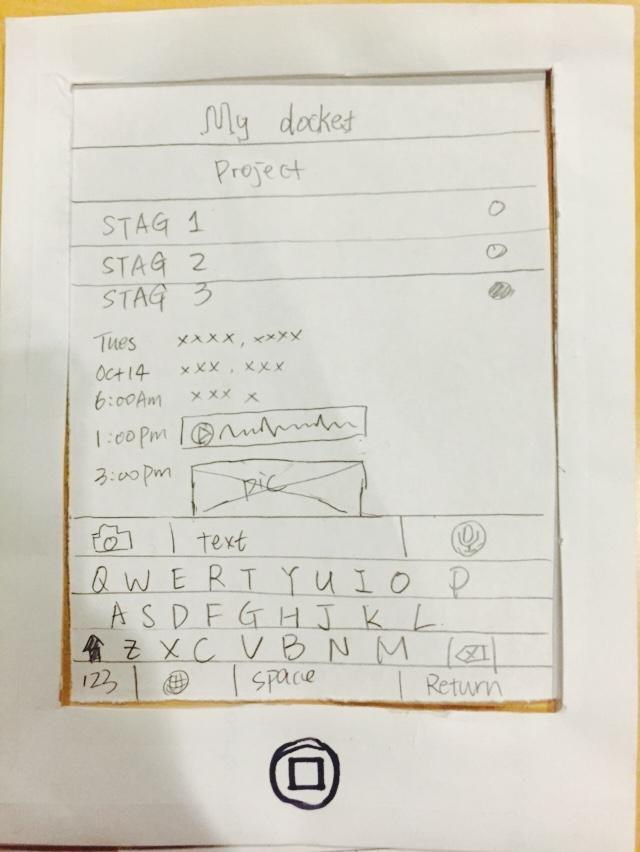 My docket
Project
STAG 1
STAG 2
STAG 3
Tues xxxx, xxxx
Oct 14 xxx, xxx
6:00Am xxx x
1:00pm
3:00pm pic
text
Q W E R T Y U I O P
A S D F G H J K L
Z X C V B N M
123 space Return